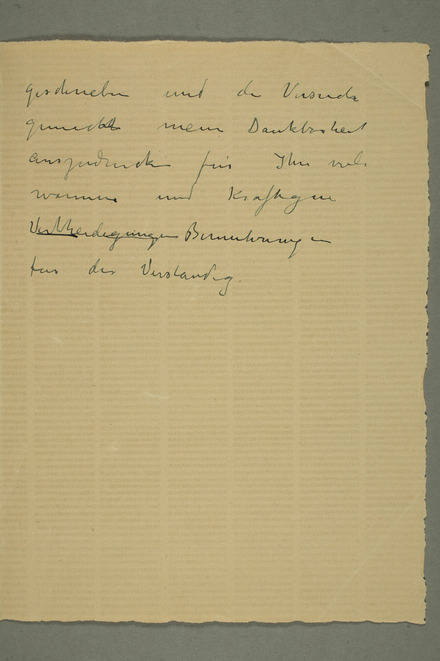 geschrieben und der Versuch
gemacht mein Dankbarkeit
auszudrucken für Ihre viele
warmen und Kraftigen
Vertheidigungen Bemuhungen
fur der Verstandig